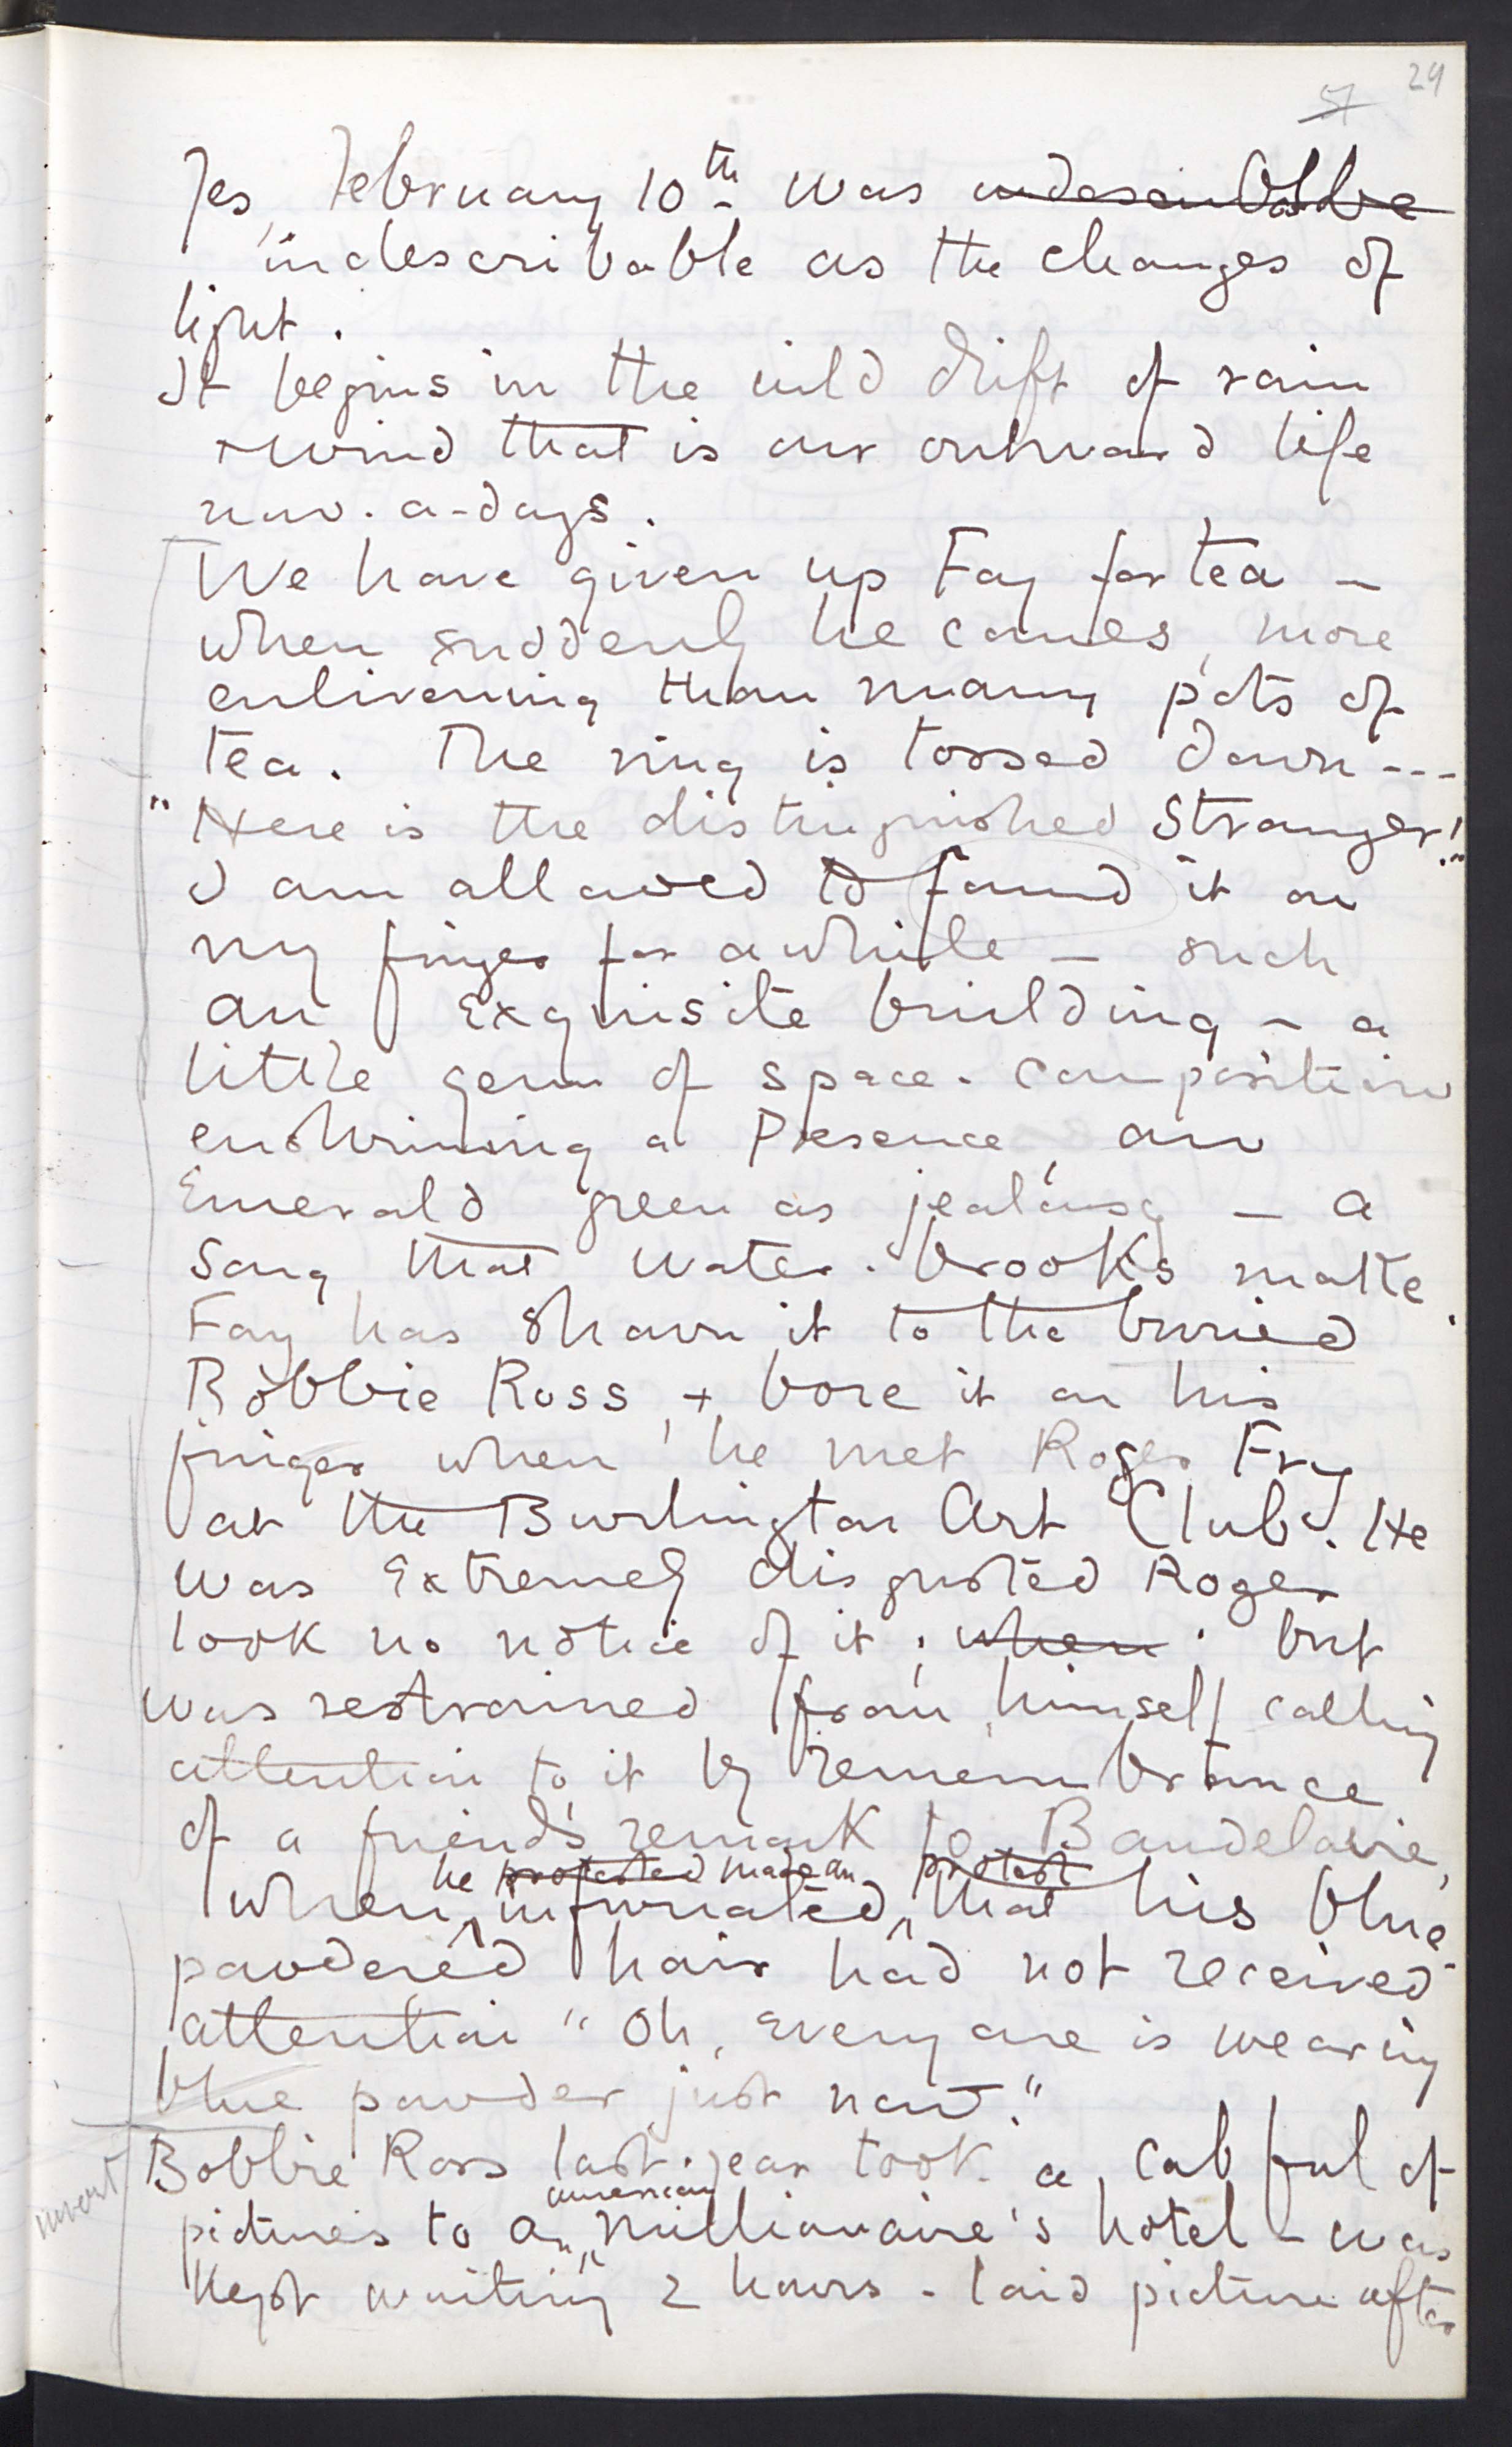 29
57
Yes, February 10th was indescribable
indescribable as the changes of
light.
It begins in the wild drift of rain
+ wind that is our outward life
now-a-days.
We have given up Fay for tea –
when suddenly he comes, more
enlivening than many pots of
tea. The ring is tossed down ---
"Here is the distinguished Stranger!"
I am allowed to found it on
my finger for awhile – such
an exquisite building – a
little gem of space-composition
enshrining a Presence, an
Emerald green as jealousy – a
song that water-brooks make.
Fay has shown it to the buried
Robbie Ross, + bore it on his
finger when he met Roger Fry
at the Burlington Art Club. He
was extremely disgusted Roger
took no notice of it; when; but
was restrained from himself calling
attention to it by remembrance
of a friend's remark to Baudelaire,
he protested made an protest
when infuriated that his blue
powdered hair had not received
attention "Oh, every one is wearing
blue powder just now."
Bobbie Ross last year took a cab ful of
american
pictures to an millionaire's hotel – was
insert
kept waiting 2 hours – laid picture after